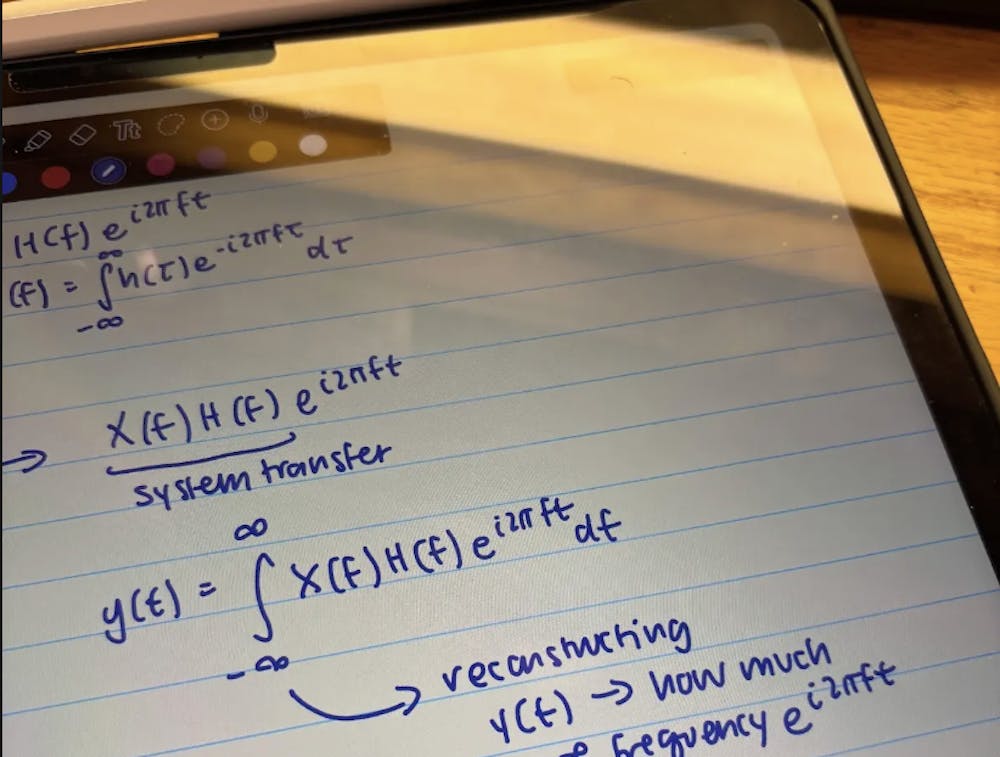 Tt
H(f) e^{i2πft}
(f) = ∫_{-∞}^{∞} h(τ) e^{-i2πfτ} dτ
→ X(f) H(f) e^{i2πft}
system transfer
y(t) = ∫_{-∞}^{∞} X(f) H(f) e^{i2πft} df
→ reconstructing
y(t) → how much
frequency e^{i2πft}